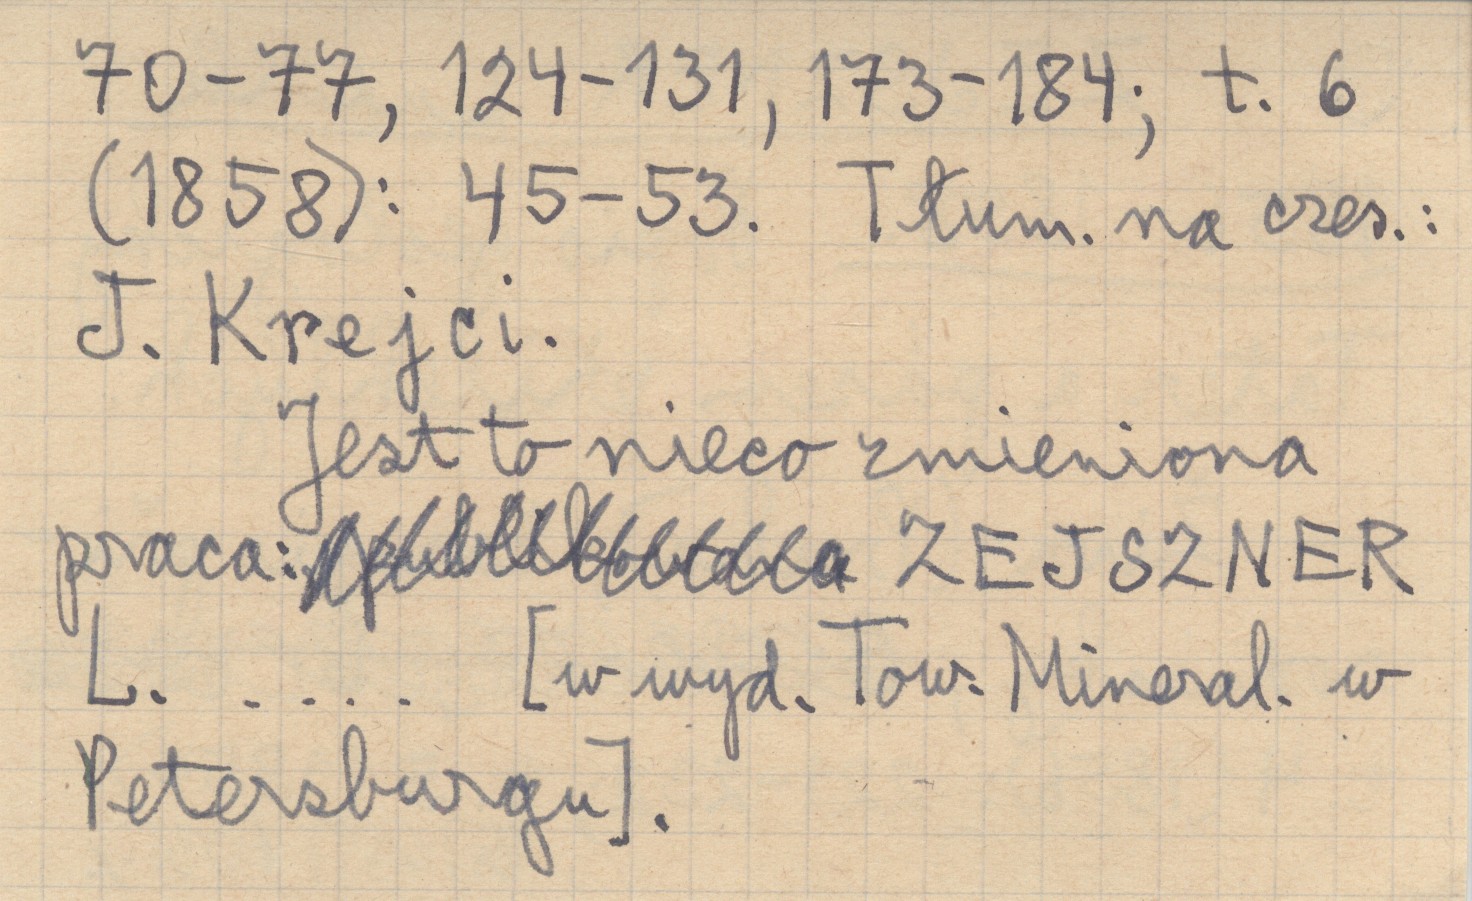 70-77, 124-131, 173-184; t. 6
(1858): 45-53. Tłum. na czes.:
J. Krejci.
Jest to nieco zmieniona
praca: ZEJSZNER
L. .... [w wyd. Tow. Mineral. w
Petersburgu].